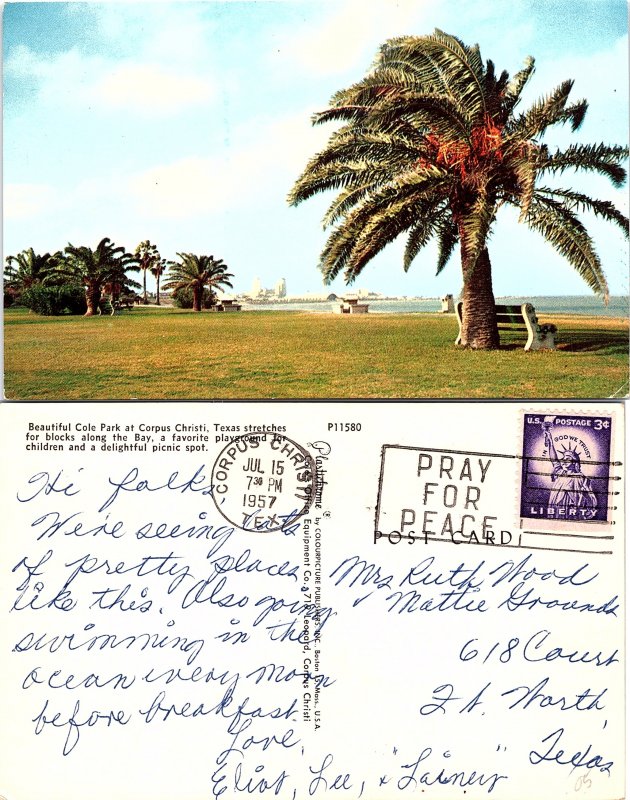 Beautiful Cole Park at Corpus Christi, Texas stretches
for blocks along the Bay, a favorite playground for
children and a delightful picnic spot.
P11580
CORPUS CHRISTI
JUL 15
7 30 PM
1957
TEX.
PRAY
FOR
PEACE
U.S. POSTAGE 3¢
IN GOD WE TRUST
LIBERTY
POST CARD
Plastichrome ® by COLOURPICTURE PUBLISHERS, INC., Boston 15, Mass., U.S.A.
Equipment Co., 716 Leonard, Corpus Christi
Hi folks
We're seeing lots
of pretty places
like this. Also going
swimming in the
ocean every morn
before breakfast.
Love,
Eliot, Lee, & "Lainey"
Mrs Ruth Wood
Mattie Grounds
618 Court
Ft. Worth,
Texas